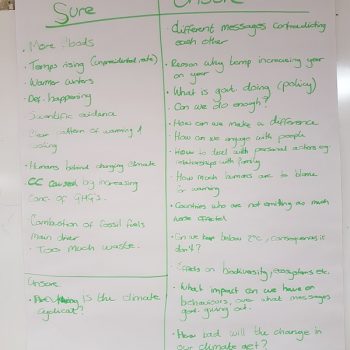 Sure
• More floods
• Temps rising (unprecidented rate)
• Warmer winters
• Def. happening
Scientific evidence
Clear pattern of warming &
cooling
• Humans behind changing climate
• CC caused by increasing
Conc. of GHGs.
Combustion of fossil fuels
Main driver
• Too much waste.
Unsure
• is the climate
cyclical?
Unsure
• different messages contradicting
each other
• Reason why temp increasing year
on year
• What is govt. doing (policy)
• Can we do enough?
• How can we make a difference
• How can we engage with people
• How to deal with personal actions eg.
relationships with family
• How much humans are to blame
for warming
• Countries who are not emitting as much
worse affected
• Can we keep below 2°C, consequences if
don't?
• Effects on biodiversity, ecosystems etc.
• What impact can we have on
behaviours, over what messages
govt. giving out.
• How bad will the change in
our climate get?